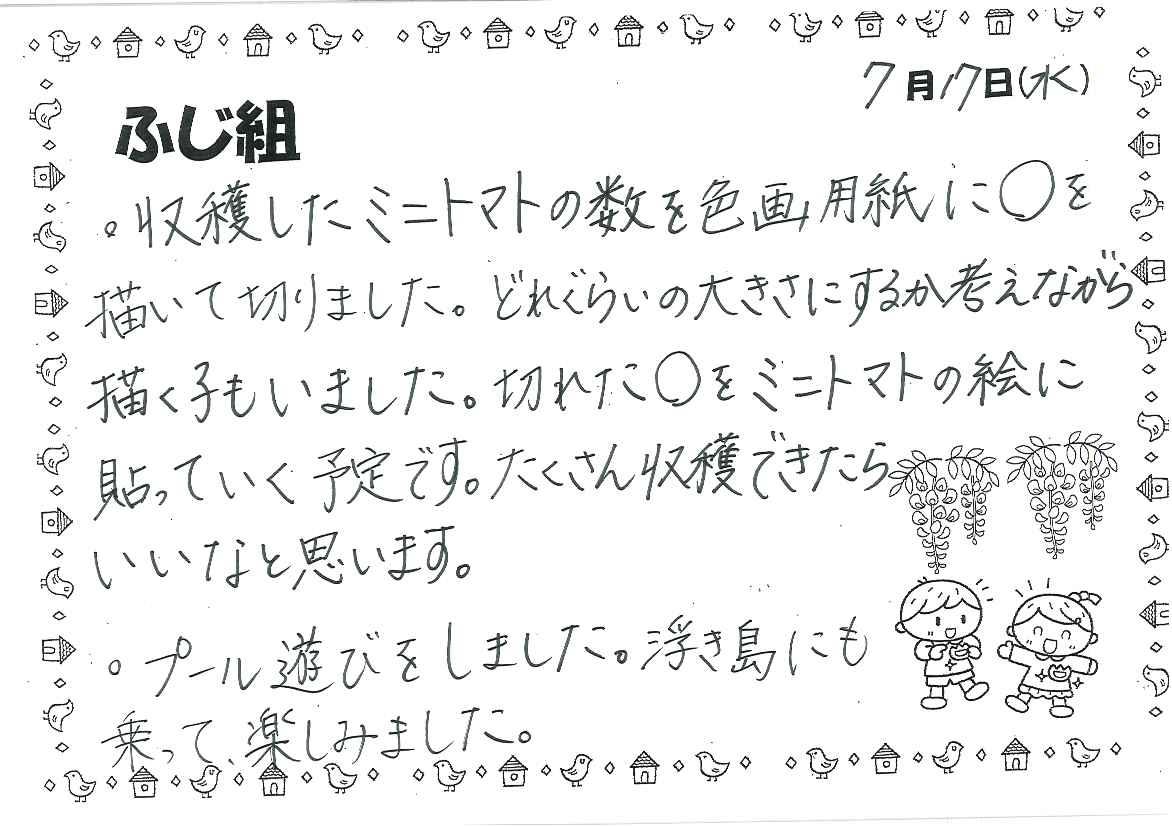 7月17日(水)
ふじ組
。収穫したミニトマトの数を色画用紙に〇を
描いて切りました。どれぐらいの大きさにするか考えながら
描く子もいました。切れた〇をミニトマトの絵に
貼っていく予定です。たくさん収穫できたら
いいなと思います。
。プール遊びをしました。浮き島にも
乗って、楽しみました。